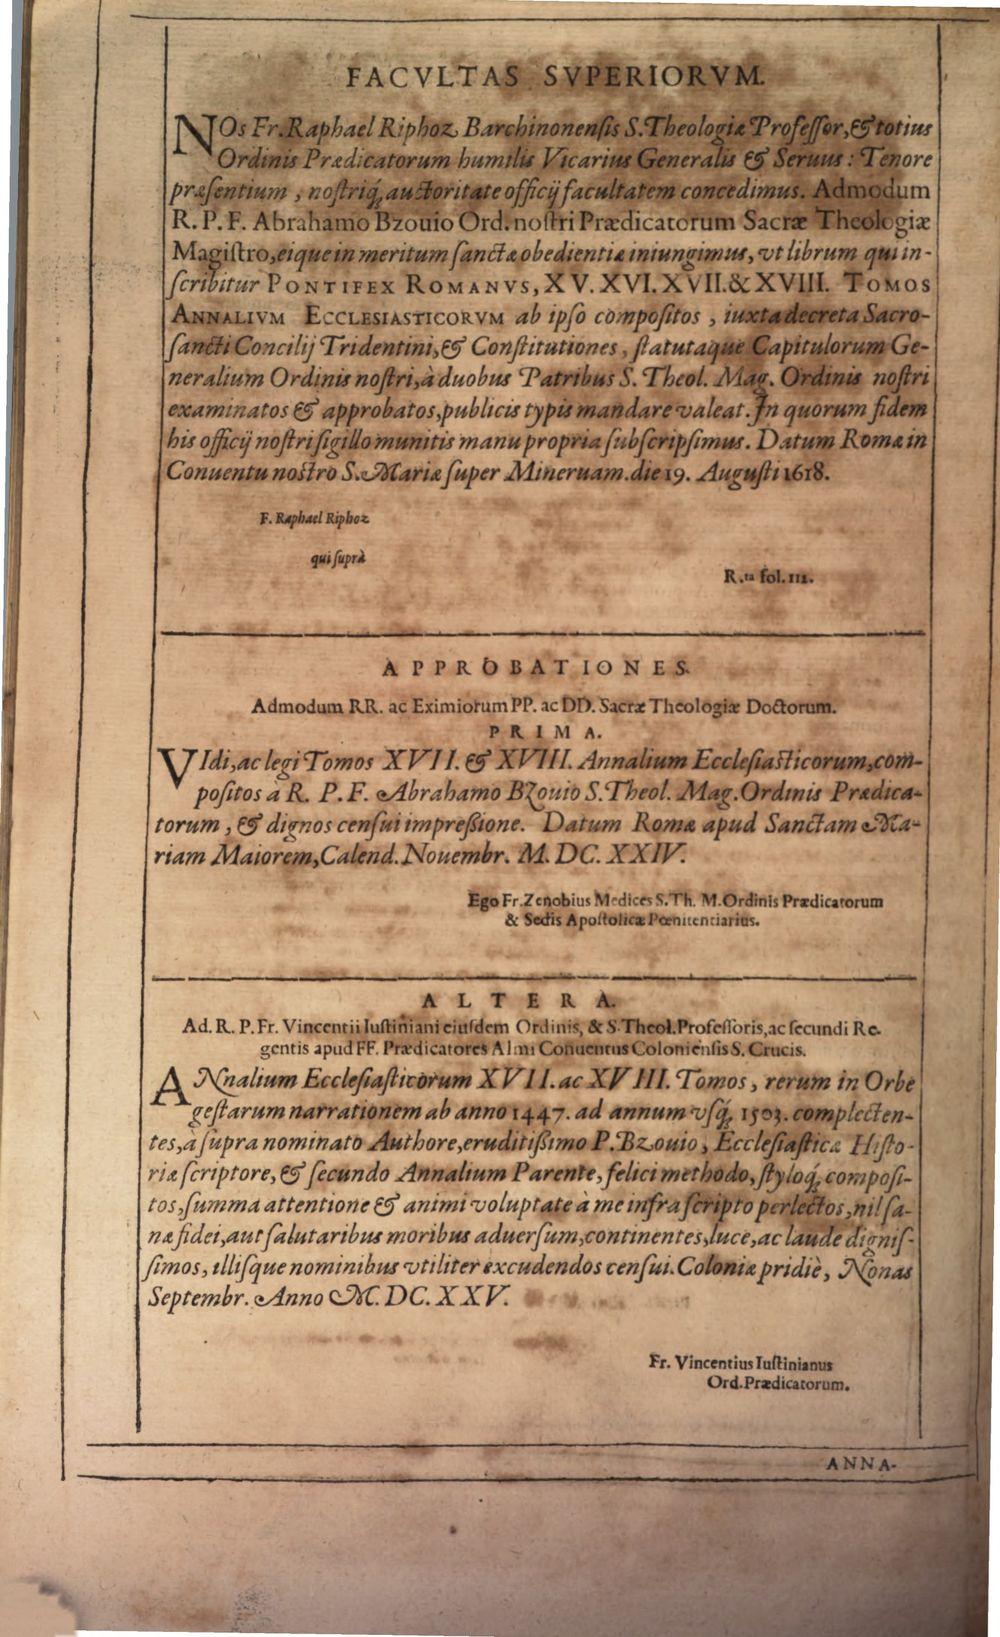 FACVLTAS SVPERIORVM.
NOs Fr. Raphael Riphoz Barchinonensis S. Theologiæ Professor, & totius
Ordinis Prædicatorum humilis Vicarius Generalis & Seruus: Tenore
præsentium, nostriq́; auctoritate officij facultatem concedimus. Admodum
R. P. F. Abrahamo Bzouio Ord. nostri Prædicatorum Sacræ Theologiæ
Magistro, eique in meritum sanctæ obedientiæ iniungimus, vt librum qui in-
scribitur PONTIFEX ROMANVS, XV. XVI. XVII. & XVIII. TOMOS
ANNALIVM ECCLESIASTICORVM ab ipso compositos, iuxta decreta Sacro-
sancti Concilij Tridentini, & Constitutiones, statutaque Capitulorum Ge-
neralium Ordinis nostri, à duobus Patribus S. Theol. Mag. Ordinis nostri
examinatos & approbatos, publicis typis mandare valeat. In quorum fidem
his officij nostri sigillo munitis manu propria subscripsimus. Datum Romæ in
Conuentu nostro S. Mariæ super Mineruam. die 19. Augusti 1618.
F. Raphael Riphoz
qui suprà
R.ta fol. 111.
APPROBATIONES.
Admodum RR. ac Eximiorum PP. ac DD. Sacræ Theologiæ Doctorum.
PRIMA.
VIdi, ac legi Tomos XVII. & XVIII. Annalium Ecclesiasticorum, com-
positos à R. P. F. Abrahamo Bzouio S. Theol. Mag. Ordinis Prædica-
torum, & dignos censui impressione. Datum Romæ apud Sanctam Ma-
riam Maiorem, Calend. Nouembr. M. DC. XXIV.
Ego Fr. Zenobius Medices S. Th. M. Ordinis Prædicatorum
& Sedis Apostolicæ Pœnitentiarius.
ALTERA.
Ad. R. P. Fr. Vincentii Iustiniani eiusdem Ordinis, & S. Theol. Professoris, ac secundi Re-
gentis apud FF. Prædicatores Almi Conuentus Coloniensis S. Crucis.
ANnalium Ecclesiasticorum XVII. ac XVIII. Tomos, rerum in Orbe
gestarum narrationem ab anno 1447. ad annum vsq́; 1503. complecten-
tes, à supra nominato Authore, eruditissimo P. Bzouio, Ecclesiasticæ Histo-
riæ scriptore, & secundo Annalium Parente, felici methodo, styloq́; composi-
tos, summa attentione & animi voluptate à me infra scripto perlectos, nil sa-
næ fidei, aut salutaribus moribus aduersum, continentes, luce, ac laude dignis-
simos, illisque nominibus vtiliter excudendos censui. Coloniæ pridiè, Nonas
Septembr. Anno M. DC. XXV.
Fr. Vincentius Iustinianus
Ord. Prædicatorum.
ANNA-